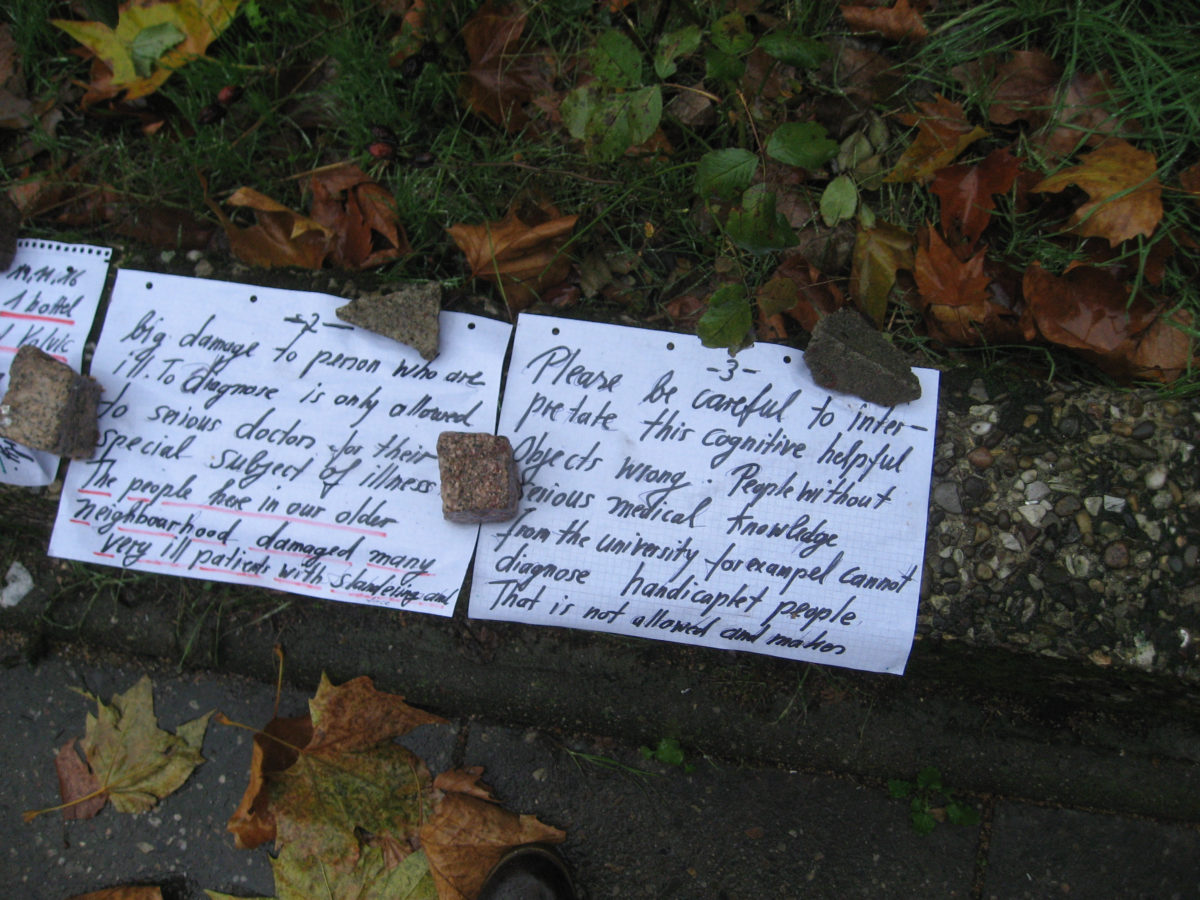 19.11.06
1 bottel
Volvic
-2-
big damage to person who are
ill. To diagnose is only allowed
to serious doctors for their
special subject of illness
The people here in our older
neighbourhood damaged many
very ill patients with slandeling and
-3-
Please be careful to inter-
pretate this cognitive helpful
Objects wrong. People without
serious medical knowledge
from the university for exampel cannot
diagnose handicaplet people
That is not allowed and makes